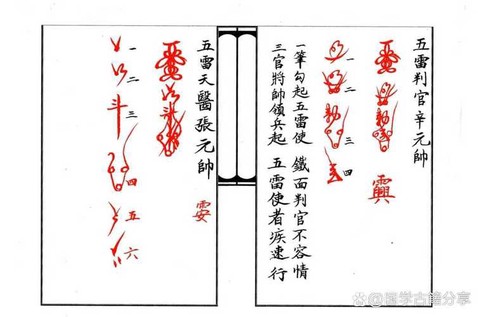 五雷判官辛元帥
一 二 三 四
一筆勾起五雷使 鐵面判官不容情
三官將帥領兵起 五雷使者疾速行
五雷天醫張元帥
一 二 三 四 五 六
斗
国学古籍分享